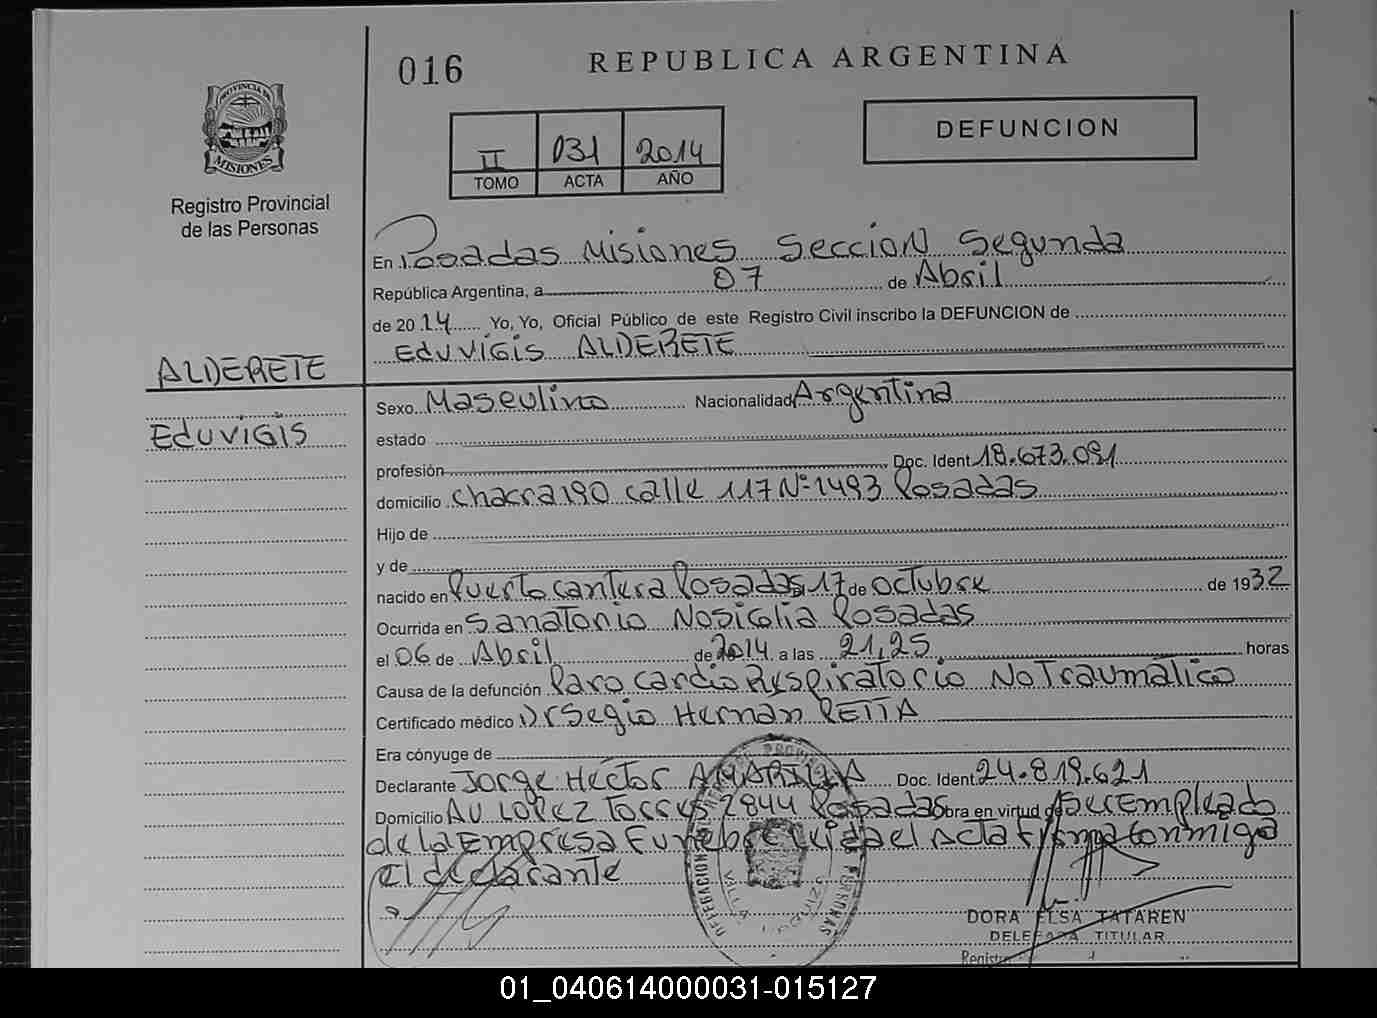 016
REPUBLICA ARGENTINA
PROVINCIA DE
MISIONES
Registro Provincial
de las Personas
II 031 2014
TOMO ACTA AÑO
DEFUNCION
En Posadas Misiones Seccion Segunda
República Argentina, a 07 de Abril
de 2014 Yo, Yo, Oficial Público de este Registro Civil inscribo la DEFUNCION de
Eduvigis ALDERETE
ALDERETE
Eduvigis
Sexo Masculino Nacionalidad Argentina
estado
profesión Doc. Ident 18.673.091
domicilio chacra 190 calle 117 Nº 1493 Posadas
Hijo de
y de
nacido en Puerto cantera Posadas 17 de octubre de 1932
Ocurrida en Sanatorio Nosiglia Posadas
el 06 de Abril de 2014 a las 21,25 horas
Causa de la defunción Paro cardio Respiratorio No Traumatico
Certificado médico Dr Segio Hernan PETTA
Era cónyuge de
Declarante Jorge Hector AMARILLA Doc. Ident 24.819.621
Domicilio AV LOPEZ Torres 2844 Posadas obra en virtud de ser Empleado
de la Empresa Funebre Leida el Acta Firma conmigo
el declarante
DORA ELSA TATAREN
DELEGADA TITULAR
01_040614000031-015127